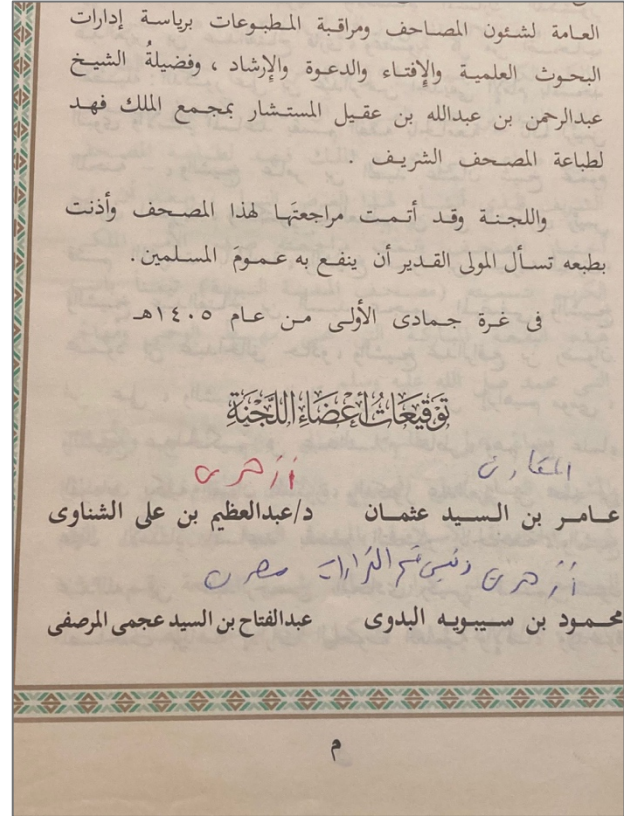 العامة لشئون المصاحف ومراقبة المطبوعات برياسة إدارات
البحوث العلمية والإفتاء والدعوة والإرشاد ، وفضيلةُ الشيخ
عبدالرحمن بن عبدالله بن عقيل المستشار بمجمع الملك فهد
لطباعة المصحف الشريف .
واللجنة وقد أتمت مراجعتَها لهذا المصحف وأذنت
بطبعه تسأل المولى القدير أن ينفع به عمومَ المسلمين .
فى غرة جمادى الأولى من عام ١٤٠٥هـ
تَوقيعَاتُ أعْضَاءِ اللَّجْنَةِ
أزهرى
عامر بن السيد عثمان د/عبدالعظيم بن على الشناوى
أزهرى رئيس قسم القراءات مصرى
محمود بن سيبويه البدوى عبدالفتاح بن السيد عجمى المرصفى
م